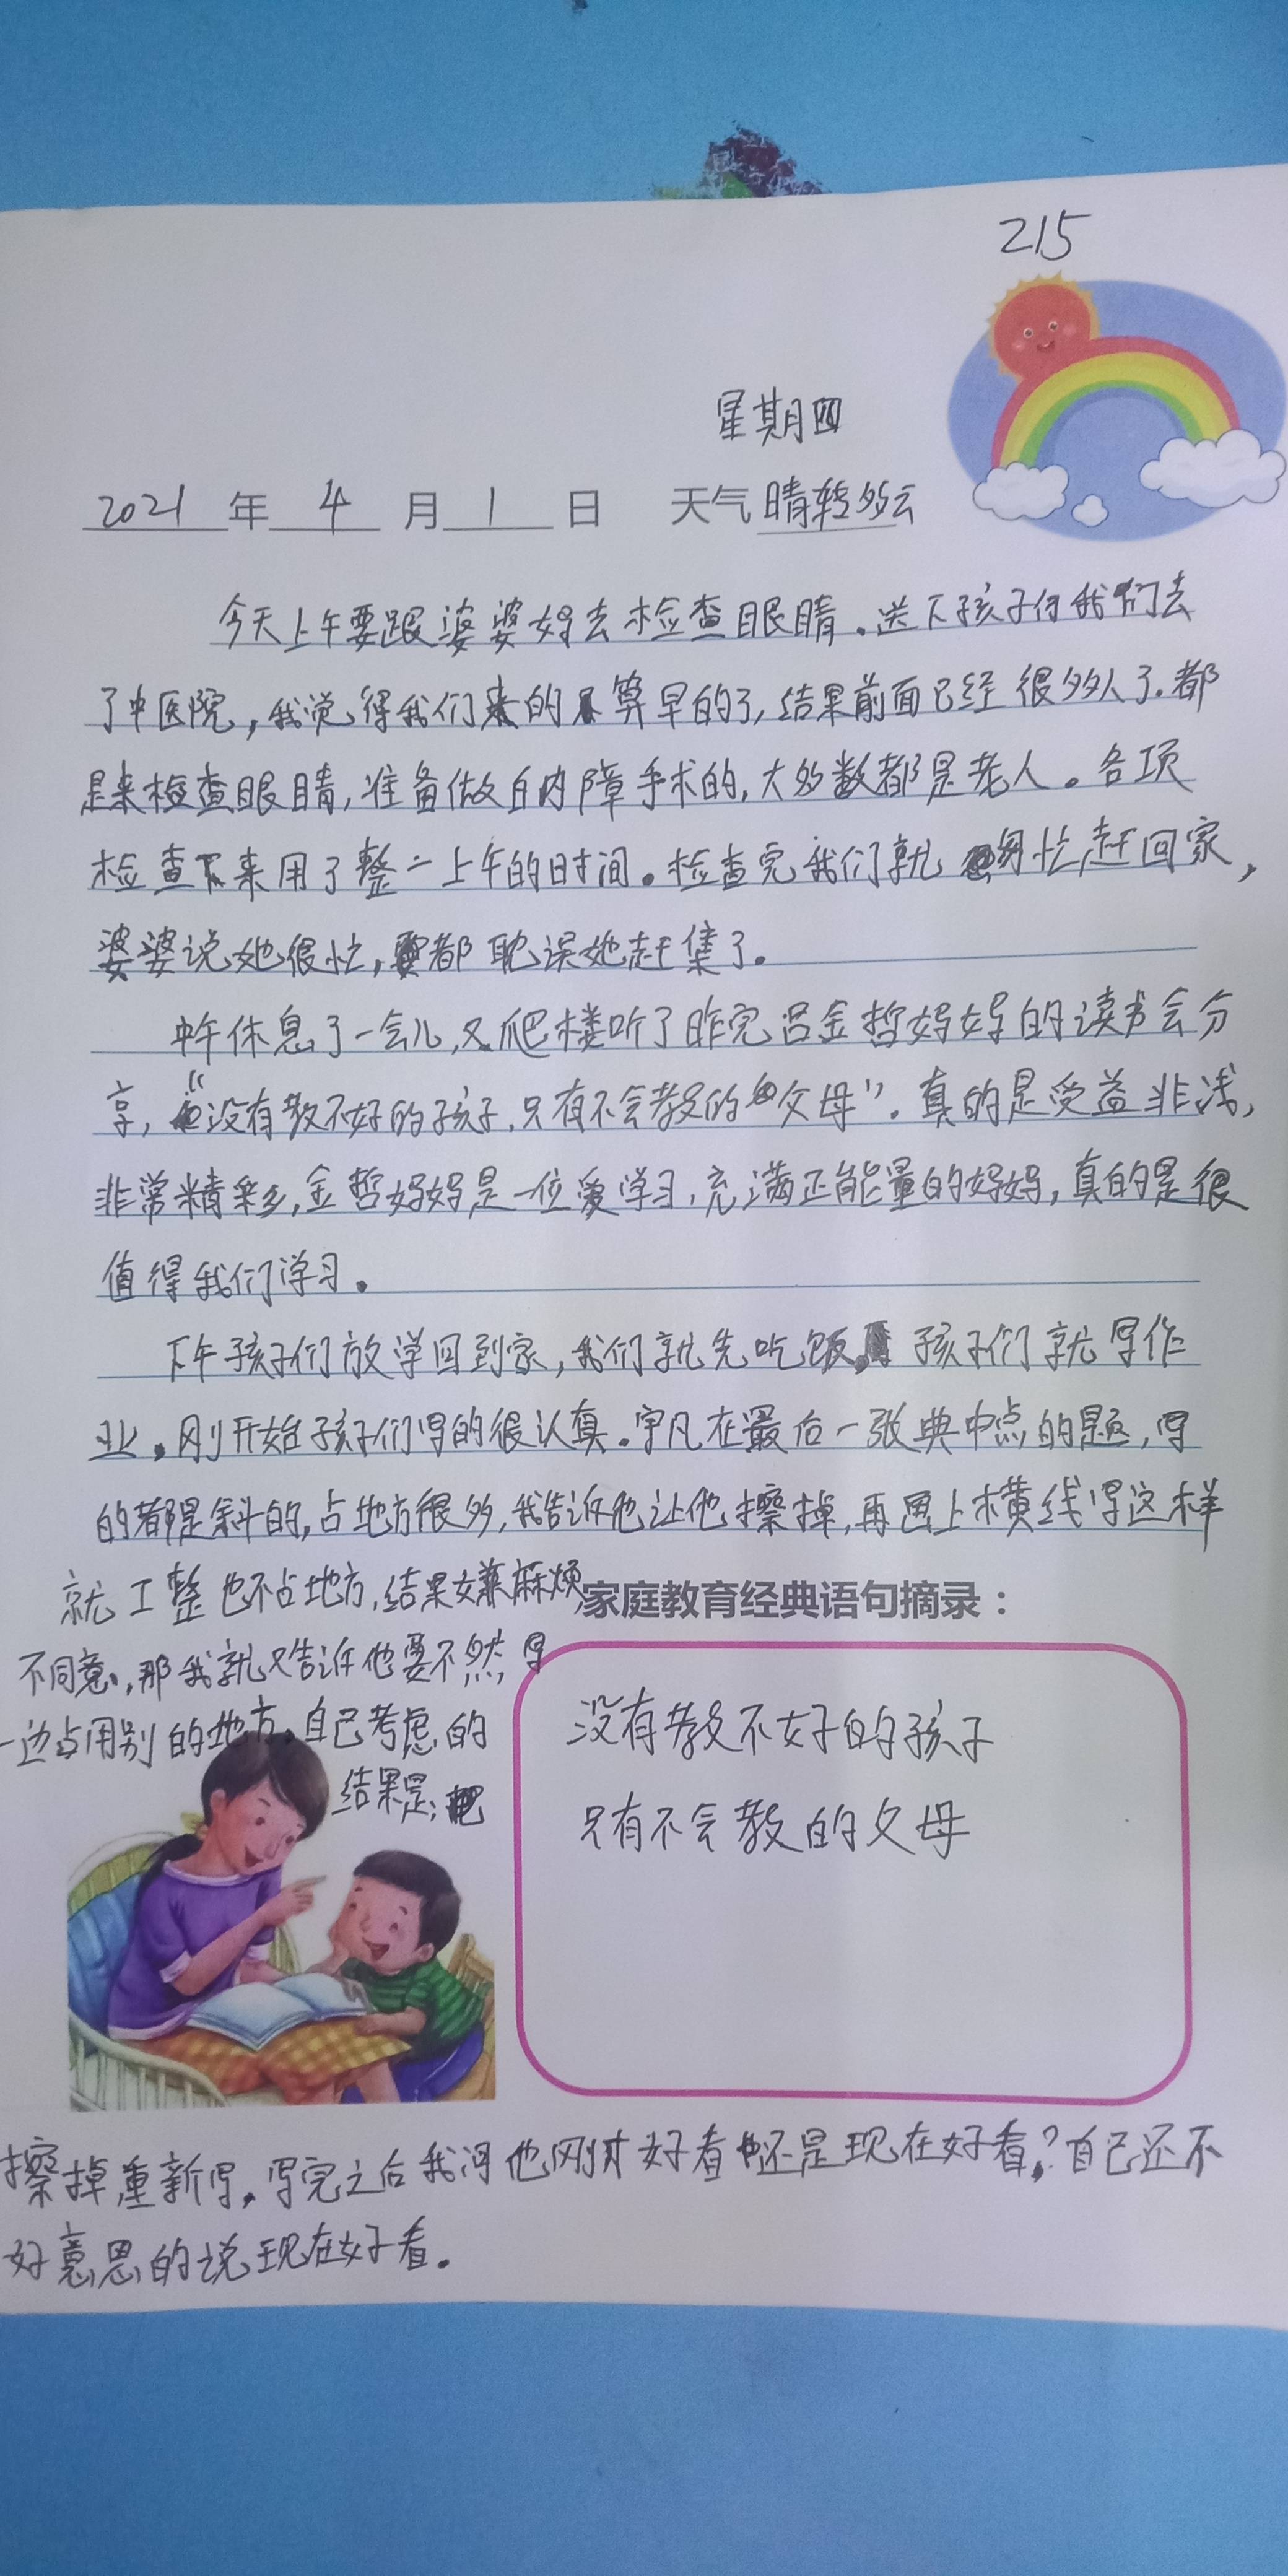 215
星期四
2021年4月1日 天气晴转多云
今天上午要跟婆婆妈去检查眼睛。送下孩子们我们去
了中医院,我觉得我们来的算早的了,结果前面已经很多人了.都
是来检查眼睛,准备做白内障手术的,大多数都是老人。各项
检查下来用了整一上午的时间。检查完我们就匆忙赶回家,
婆婆说她很忙,都耽误她赶集了.
中午休息了一会儿,又爬楼听了昨完吕金哲妈妈的读书会分
享,“没有教不好的孩子,只有不会教的父母”.真的是受益非浅,
非常精彩,金哲妈妈是一位爱学习,充满正能量的妈妈,真的是很
值得我们学习.
下午孩子们放学回到家,我们就先吃饭,孩子们就写作
业.刚开始孩子们写的很认真.宇凡在最后一张典中点的题,写
的都是斜的,占地方很多,我告诉他让他擦掉,再画上横线写这样
就工整也不占地方,结果嫌麻烦
不同意,那我就又告诉他要不然,写
一边占用别的地方。自己考虑的
结果是:
家庭教育经典语句摘录:
没有教不好的孩子
只有不会教的父母
擦掉,重新写.写完之后我问他刚才好看还是现在好看?自己还不
好意思的说现在好看.